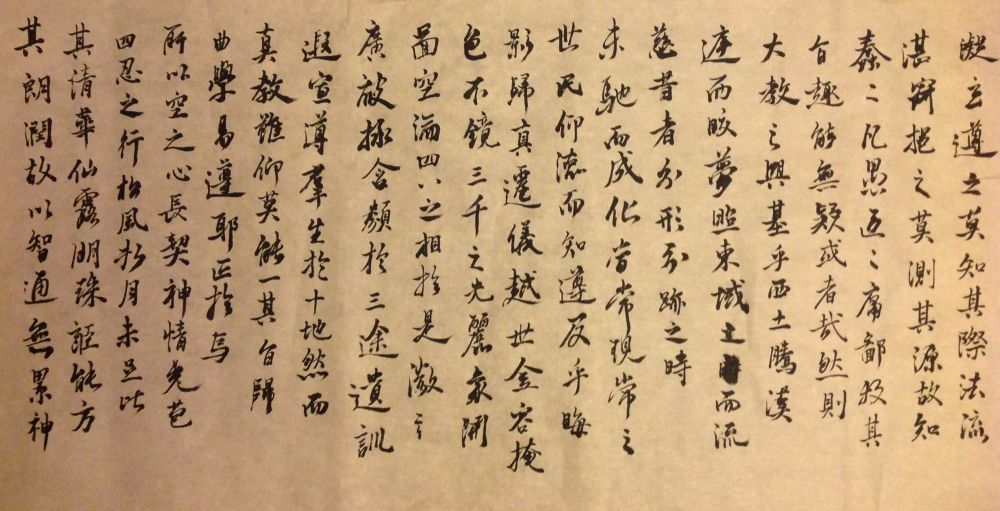 凝玄遵之莫知其際法流
湛寂挹之莫測其源故知
蠢々凡愚區々庸鄙投其
旨趣能無疑或者哉然則
大教之興基乎西土騰漢
庭而皎夢照東域土而流
慈昔者分形分跡之時
未馳而成化當常現常之
世民仰德而知遵及乎晦
影歸真遷儀越世金容掩
色不鏡三千之光麗象開
圖空端四八之相於是微言
廣敵拯含類於三途遺訓
遐宣導羣生於十地然而
真教難仰莫能一其旨歸
曲學易遵耶正於焉
所以空之心長契神情先苞
四忍之行松風水月未足比
其清華仙露明珠詎能方
其朗潤故以智通無累神